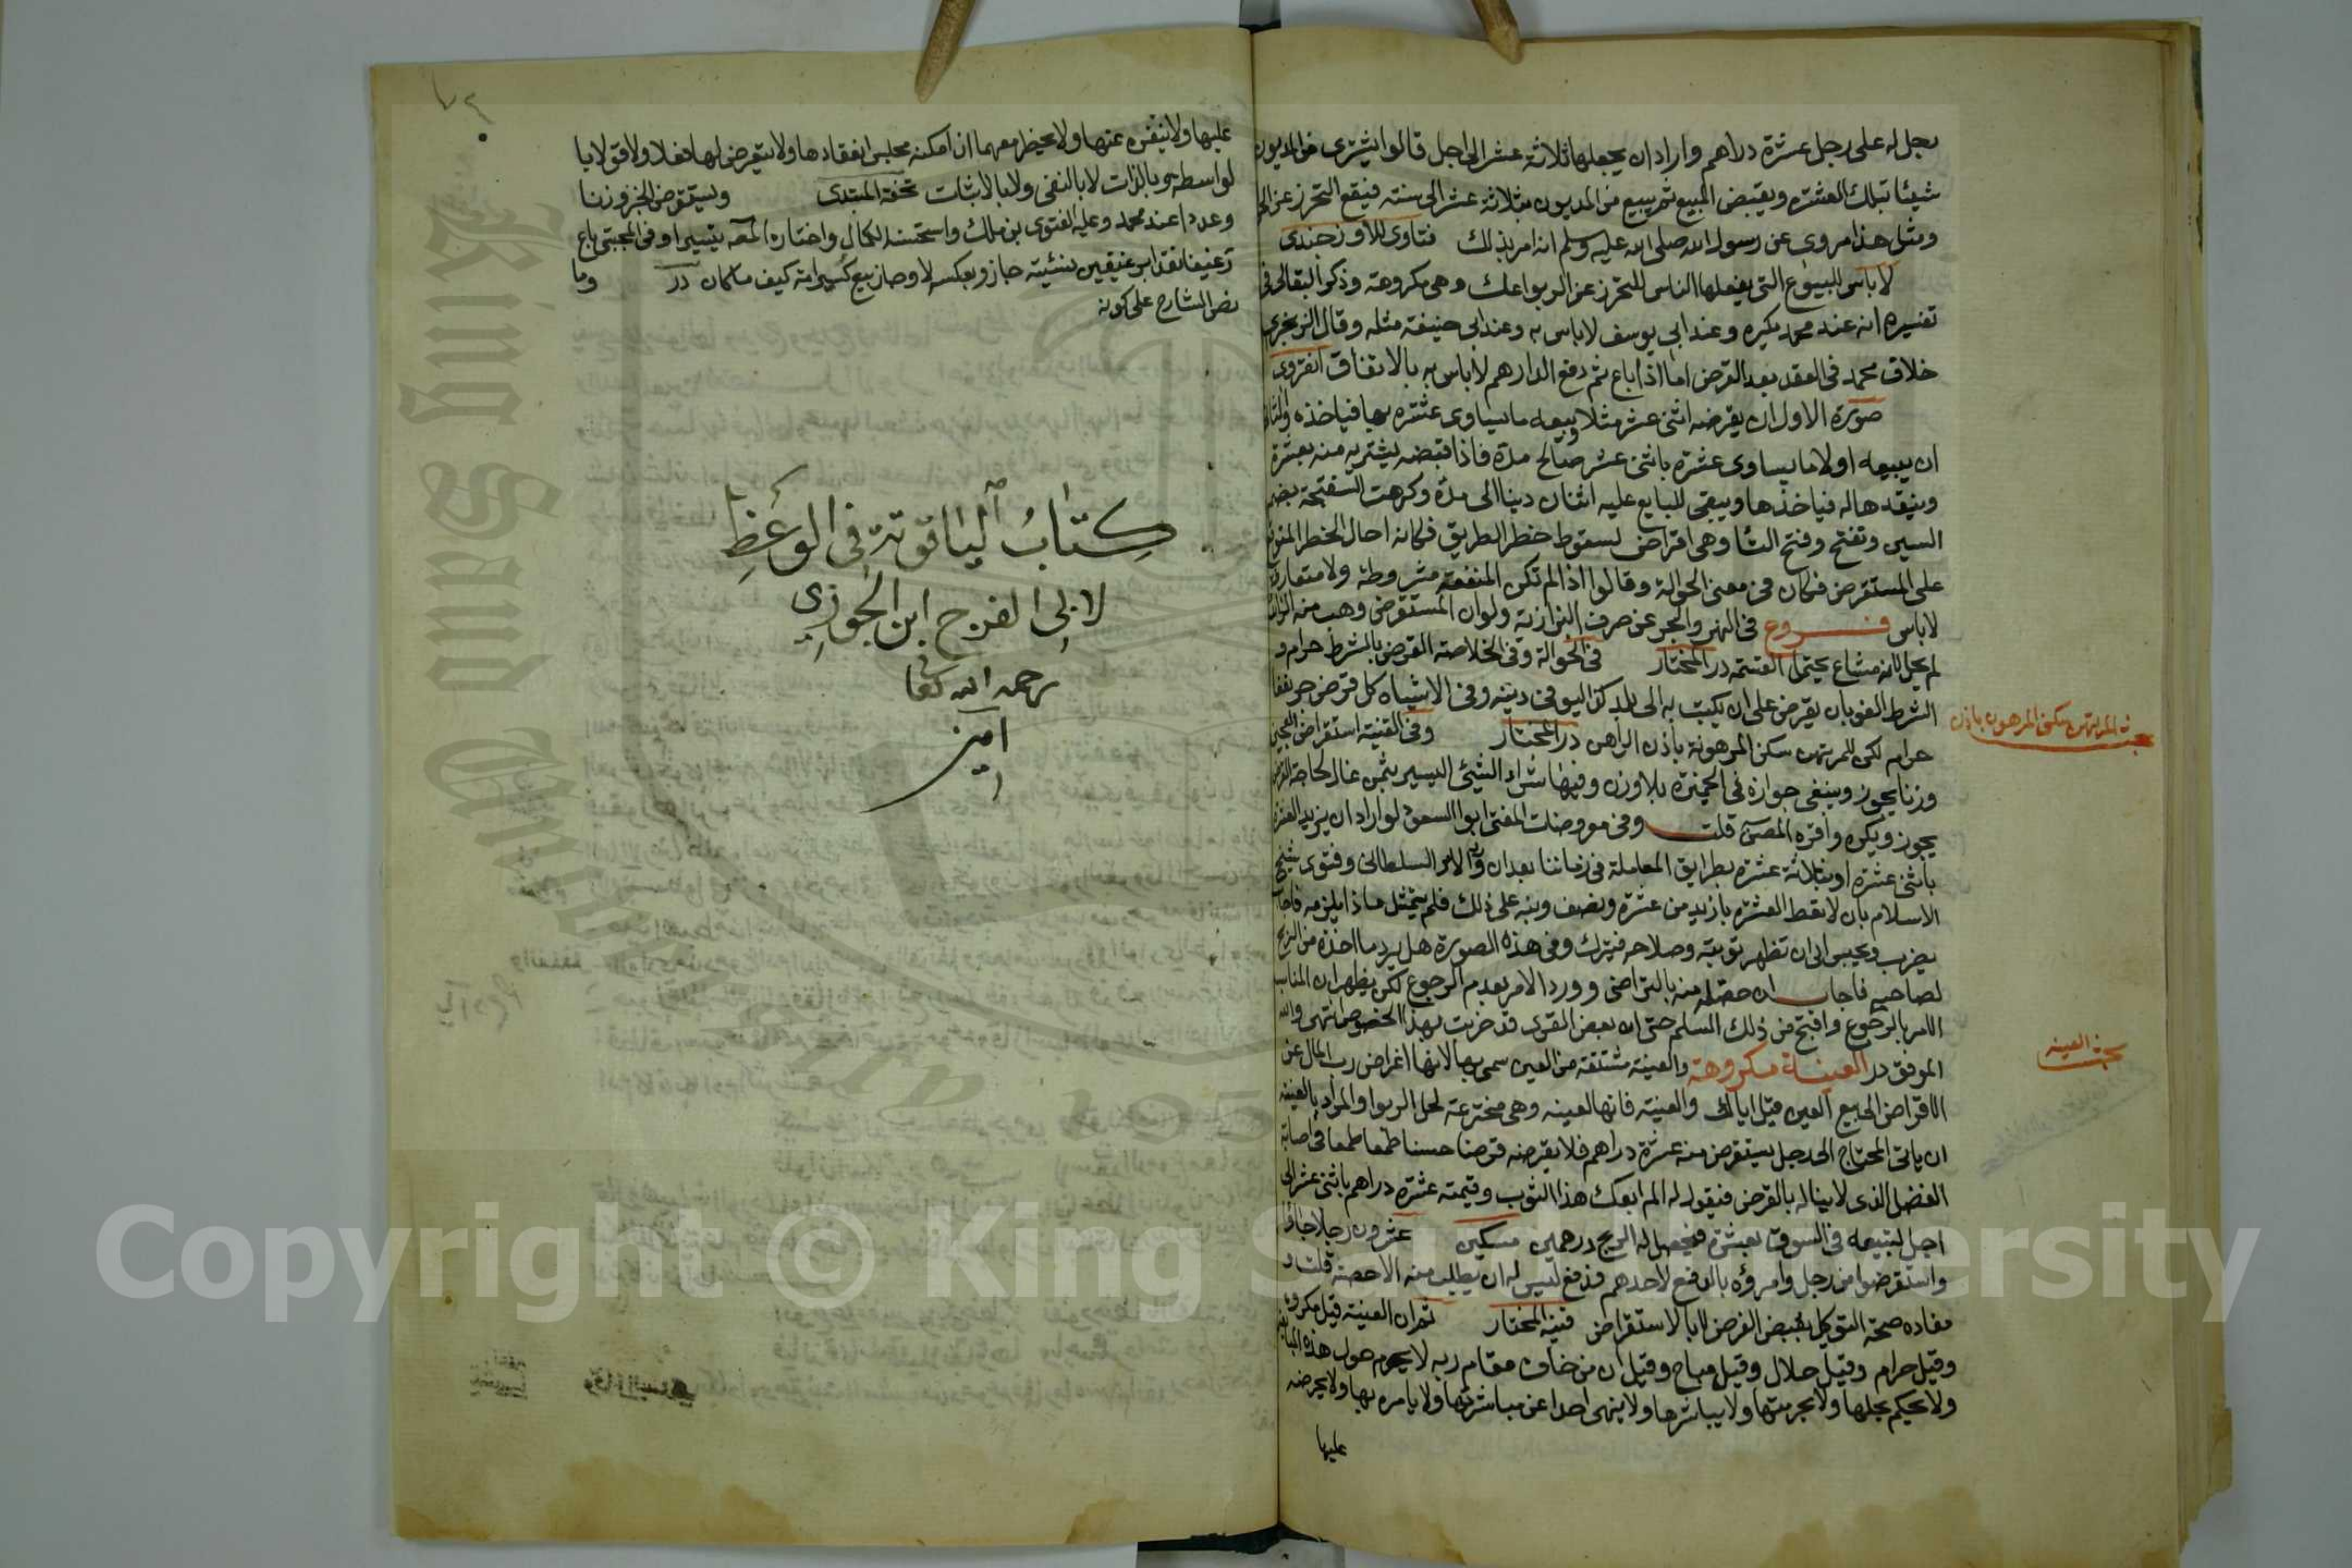 رجل له على رجل عشرة دراهم واراد ان يجعلها ثلاثة عشر الى اجل قالوا يشترى من المديون
شيئا بتلك العشرة ويقبض المبيع ثم يبيع من المديون بثلاثة عشر الى سنة فيقع التحرز عن
ومثل هذا مروى عن رسول الله صلى الله عليه وسلم انه امر بذلك فتاوى للاوزجندى
لا باس للبيوع التى يفعلها الناس للتحرز عن الربوا وهى مكروهة وذكر البقالى فى
تفسيره انه عند محمد يكره وعند ابى يوسف لاباس به وعند ابى حنيفة مثله وقال
خلاف محمد فى العقد بعد القرض اما اذا باع ثم دفع الدارهم لاباس به بالاتفاق انقروى
صورة الاول ان يقرضه اثنى عشر مثلا ويبيعه ما يساوى عشرة بها فياخذه
ان يبيعه اولا ما يساوى عشرة باثنى عشر مدة فاذا قبضه يشتريه منه بعشرة
وينقدها له فياخذها ويبقى للبايع عليه اثنان دينا الى مدة وكرهت السفتجة بضم
السين وتفتح وفتح التا وهى اقراض لسقوط خطر الطريق فكانه احال الخطر
على المستقرض فكان فى معنى الحوالة وقالوا اذا لم تكن المنفعة مشروطة ولا متعارفة
لاباس فروع فى النهر والبحر عن صرف البزازية ولو ان المستقرض وهب منه
لم يجز لانه مشاع يحتمل القسمة در المختار فى الحوالة وفى الخلاصة القرض بالشرط حرام و
الشرط لغو بان يقرض على ان يكتب به الى بلد كذا ليوفى دينه وفى الاشباه كل قرض جر نفعا
حرام لكن للمرتهن سكن المرهونة باذن الراهن در المختار وفى القنية استقراض العجين
وزنا يجوز وينبغى جوازه فى الخميرة بلا وزن وفيها شراء الشيئ اليسير بثمن غال لحاجة
يجوز ويكره واقره المصـ قلت وفى معروضات المفتى ابوا السعود لو اراد ان يزيد العشرة
باثنى عشرة او بثلاثة عشرة بطرايق المعاملة فى زماننا بعد ان ورد الامر السلطانى وفتوى شيخ
الاسلام بان لا يعط العشرة بازيد من عشرة ونصف ونبه على ذلك فلم يتمثل ماذا يلزمه فاجاب
يعزر ويحبس الى ان تظهر توبته وصلاحه فيترك وفى هذه الصورة هل يرد ما اخذه من الربح
لصاحبه فاجاب ان حصله منه بالتراضى وورد الامر بعدم الرجوع لكن يظهر ان المناسب
الامر بالرجوع واقبح من ذلك السلم حتى ان بعض القرى قد خربت بهذا الخصوص انتهى والله
الموفق در العينة مكروهة والعينة مشتقة من العين سمى بها لانها اعراض رب المال عن
الاقراض الى بيع العين قيل اياك والعينة فانها لعينه وهى مخترعة لحل الربوا والمراد بالعينة
ان ياتى المحتاج الى رجل يستقرض منه عشرة دراهم فلا يقرضه قرضا حسنا طمعا فى اصابة
الفضل الذى لا يناله بالقرض فيقول له ابعك هذا الثوب وقيمته عشرة دراهم باثنى عشر الى
اجل لتبيعه فى السوق بعشرة فيحصل له الربح درهمين مسكين عشرون رجلا جاؤا
واستقرضوا من رجل وامروه بالدفع لاحدهم فدفع ليس له ان يطلب منه الا حصته قلت و
مفاده صحة التوكيل بقبض القرض لا بالاستقراض قنية المختار ثم ان العينة قيل مكروه
وقيل حرام وقيل حلال وقيل مباح وقيل ان من خاف مقام ربه لا يحوم حول هذه
ولا يحكم بحلها ولا بحرمتها ولا يباشرها ولا ينهى احدا عن مباشرتها ولا يامره بها ولا يحرضه
عليها
بحث للمرتهن سكنى المرهون باذن
بحث العينه
٧٢
عليها ولا ينفره عنها ولا يحضر معهما ان امكنه مجلس انعقادها ولا يتعرض لها فعلا ولا
لواسطه هو بالذات لا بالنفى ولا بالاثبات تحفة المبتدى ويستقرض الخبز وزنا
وعددا عند محمد وعليه الفتوى بن ملك واستحسنه الكمال واختاره المصـ تيسيرا وفى المجتبى باع
رغيفا نقدا برغيفين نسئية جاز وبعكسه لا وجاز بيع كسيراته كيف ماكان در وما
نص الشارح على كونه
كتاب الياقوتة فى الوعظ
لابى الفرج ابن الجوزى
رحمه الله تعالى
امين
Copyright © King Saud University